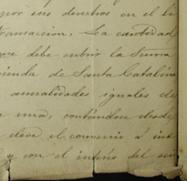 por sus derechos en el li
transaccion. La cantidad
que debe cubrir la Suma
cienda de Santa Catalina
anualidades iguales de
una, contandose desde
eleve el convenio á ins
y con el interés del seis